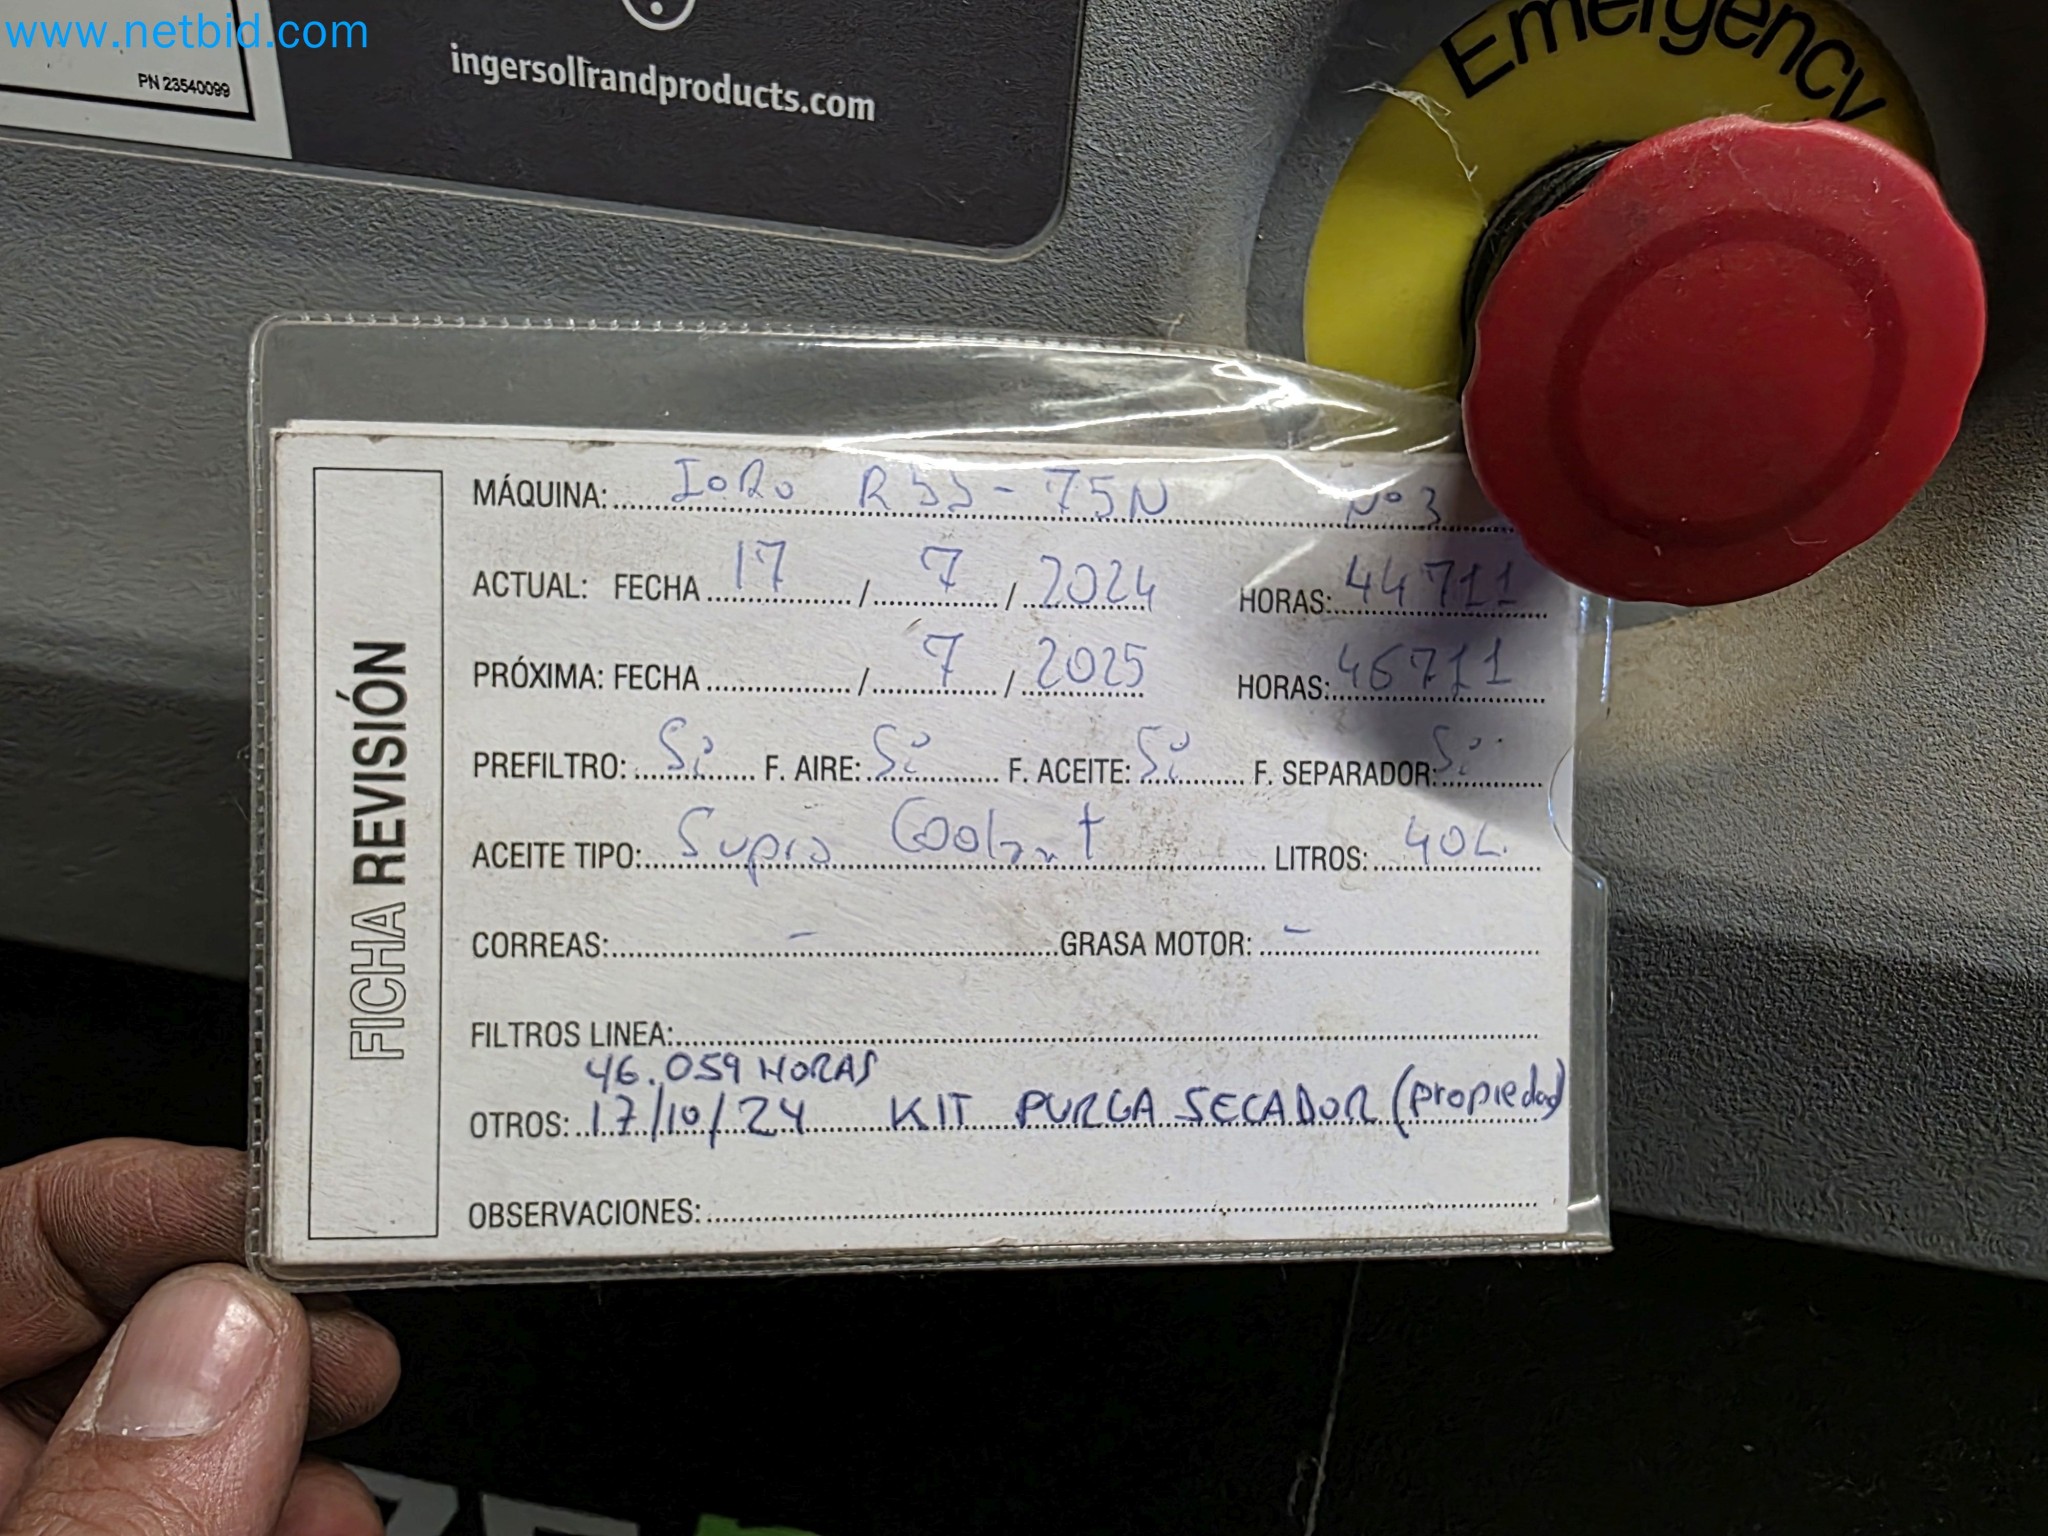 www.netbid.com
PN 23540099
ingersollrandproducts.com
Emergency
FICHA REVISIÓN
MÁQUINA: R55-75N Nº 3
ACTUAL: FECHA 17 / 7 / 2024 HORAS: 44711
PRÓXIMA: FECHA / 7 / 2025 HORAS: 46711
PREFILTRO: Si F. AIRE: Si F. ACEITE: Si F. SEPARADOR: Si
ACEITE TIPO: Supra Coolant LITROS: 40L.
CORREAS: - GRASA MOTOR: -
FILTROS LINEA:
46.059 HORAS
OTROS: 17/10/24 KIT PURGA SECADOR (propiedad)
OBSERVACIONES: